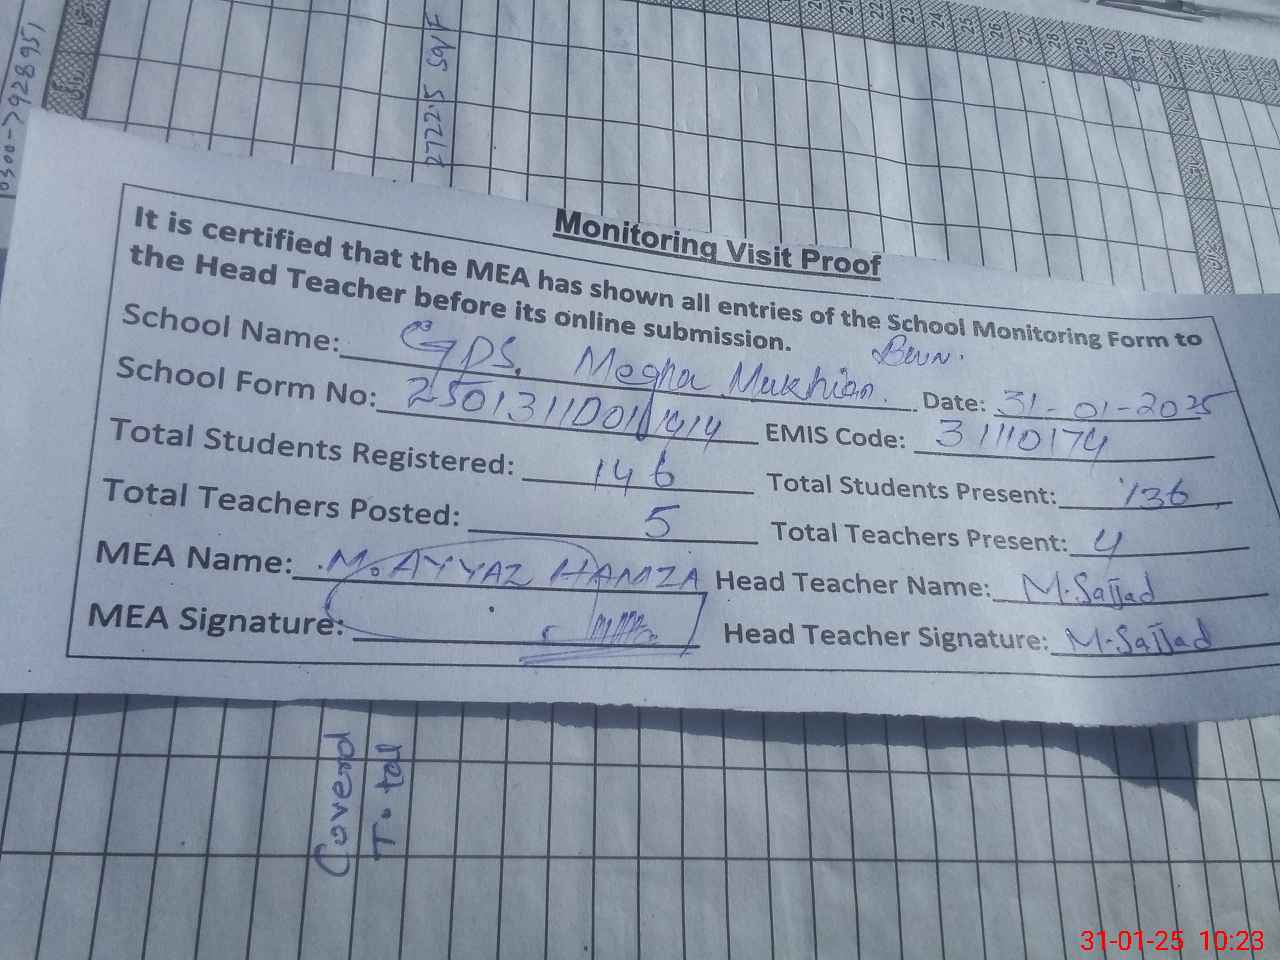 0300-7928951
27225 Sq/F
20 21 22 23 24 25 26 27 28 29 30 31
Monitoring Visit Proof
It is certified that the MEA has shown all entries of the School Monitoring Form to
the Head Teacher before its online submission.
School Name: GPS, Megha Mukhian. Bwn. Date: 31-01-2025
School Form No: EMIS Code: 31110174
Total Students Registered: 146 Total Students Present: 136
Total Teachers Posted: 5 Total Teachers Present: 4
MEA Name: M. AYYAZ HAMZA Head Teacher Name: M.Sajjad
MEA Signature: Head Teacher Signature: M.Sajjad
Coverd
Total
31-01-25 10:23